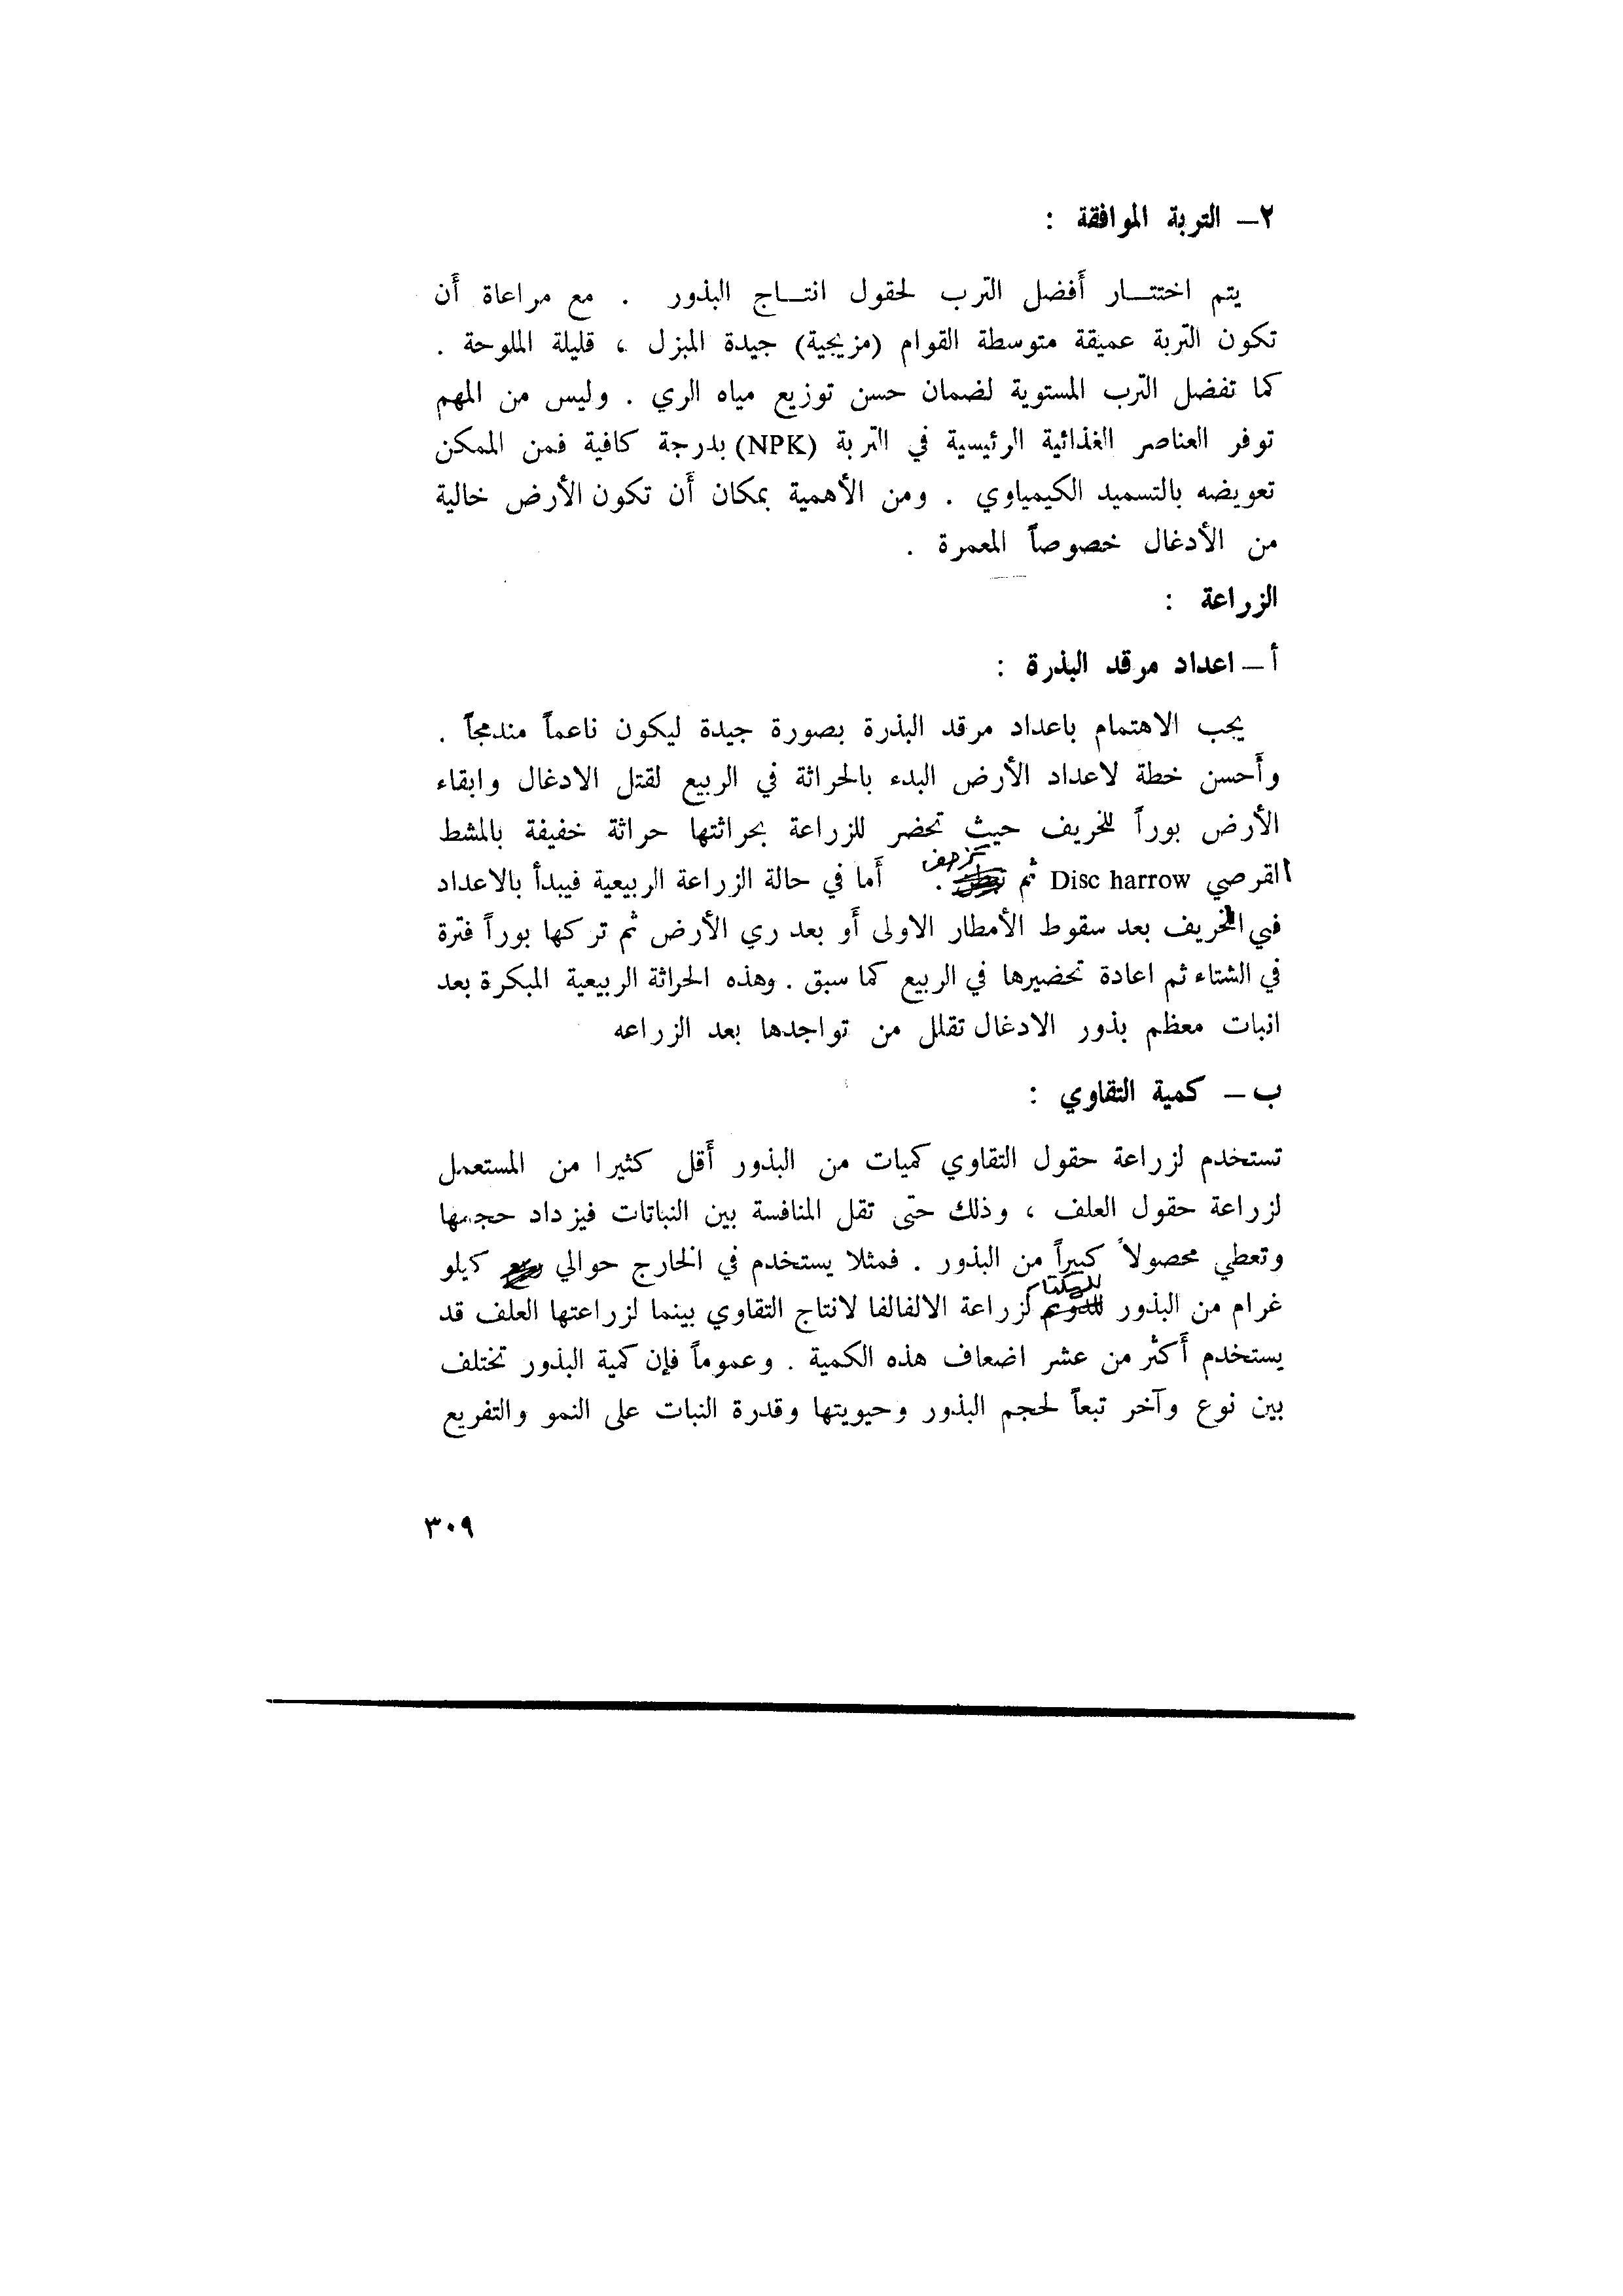 ٢ــ التربة الموافقة :
يتم اختتـــار أفضل الترب لحقول انتـــاج البذور . مع مراعاة أن
تكون التربة عميقة متوسطة القوام (مزيجية) جيدة المبزل ، قليلة الملوحة .
كما تفضل الترب المستوية لضمان حسن توزيع مياه الري . وليس من المهم
توفر العناصر الغذائية الرئيسية في التربة (NPK) بدرجة كافية فمن الممكن
تعويضه بالتسميد الكيمياوي . ومن الأهمية بمكان أن تكون الأرض خالية
من الأدغال خصوصاً المعمرة .
الزراعة :
أ ــ اعداد مرقد البذرة :
يجب الاهتمام باعداد مرقد البذرة بصورة جيدة ليكون ناعماً مندمجاً .
وأحسن خطة لاعداد الأرض البدء بالحراثة في الربيع لقتل الادغال وابقاء
الأرض بوراً للخريف حيث تحضر للزراعة بحراثتها حراثة خفيفة بالمشط
القرصي Disc harrow ثم تزحف . أما في حالة الزراعة الربيعية فيبدأ بالاعداد
في الخريف بعد سقوط الأمطار الاولى أو بعد ري الأرض ثم تركها بوراً فترة
في الشتاء ثم اعادة تحضيرها في الربيع كما سبق . وهذه الحراثة الربيعية المبكرة بعد
انبات معظم بذور الادغال تقلل من تواجدها بعد الزراعه
ب ــ كمية التقاوي :
تستخدم لزراعة حقول التقاوي كميات من البذور أقل كثيرا من المستعمل
لزراعة حقول العلف ، وذلك حتى تقل المنافسة بين النباتات فيزداد حجمها
وتعطي محصولاً كبيراً من البذور . فمثلا يستخدم في الخارج حوالي كيلو
غرام من البذور للهكتار لزراعة الالفالفا لانتاج التقاوي بينما لزراعتها العلف قد
يستخدم أكثر من عشر اضعاف هذه الكمية . وعموماً فإن كمية البذور تختلف
بين نوع وآخر تبعاً لحجم البذور وحيويتها وقدرة النبات على النمو والتفريع
٣٠٩